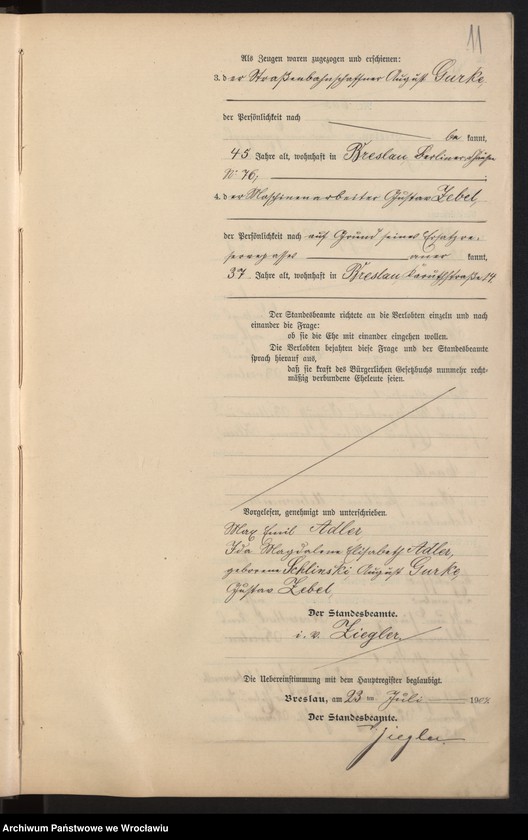 11
Als Zeugen waren zugezogen und erschienen:
3. der Straßenbahnschaffner August Gurke,
der Persönlichkeit nach
be kannt,
45 Jahre alt, wohnhaft in Breslau, Berliner Chaussee
No. 76;
4. der Maschinenarbeiter Gustav Zebel,
der Persönlichkeit nach auf Grund seines Ersatzre-
servepasses aner kannt,
37 Jahre alt, wohnhaft in Breslau Karuthstraße 14.
Der Standesbeamte richtete an die Verlobten einzeln und nach
einander die Frage:
ob sie die Ehe mit einander eingehen wollen.
Die Verlobten bejahten diese Frage und der Standesbeamte
sprach hierauf aus,
daß sie kraft des Bürgerlichen Gesetzbuchs nunmehr recht-
mäßig verbundene Eheleute seien.
Vorgelesen, genehmigt und unterschrieben.
Max Emil Adler
Ida Magdalene Elisabeth Adler,
geborene Schlinski August Gurke,
Gustav Zebel,
Der Standesbeamte.
i. V. Ziegler.
Die Uebereinstimmung mit dem Hauptregister beglaubigt.
Breslau, am 23 ten Juli
Der Standesbeamte.
Ziegler
Archiwum Państwowe we Wrocławiu